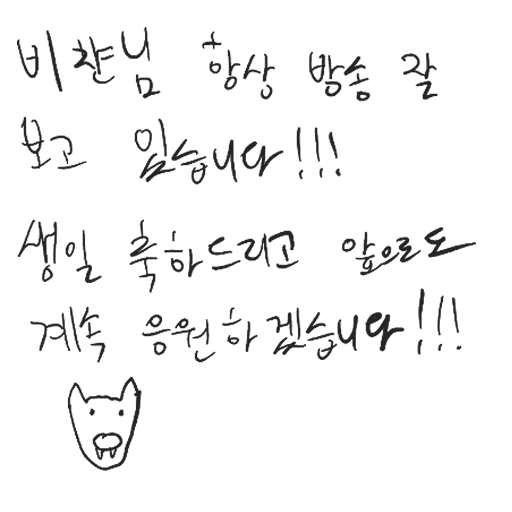 비챤님 항상 방송 잘
보고 있습니다!!!
생일 축하드리고 앞으로도
계속 응원하겠습니다!!!